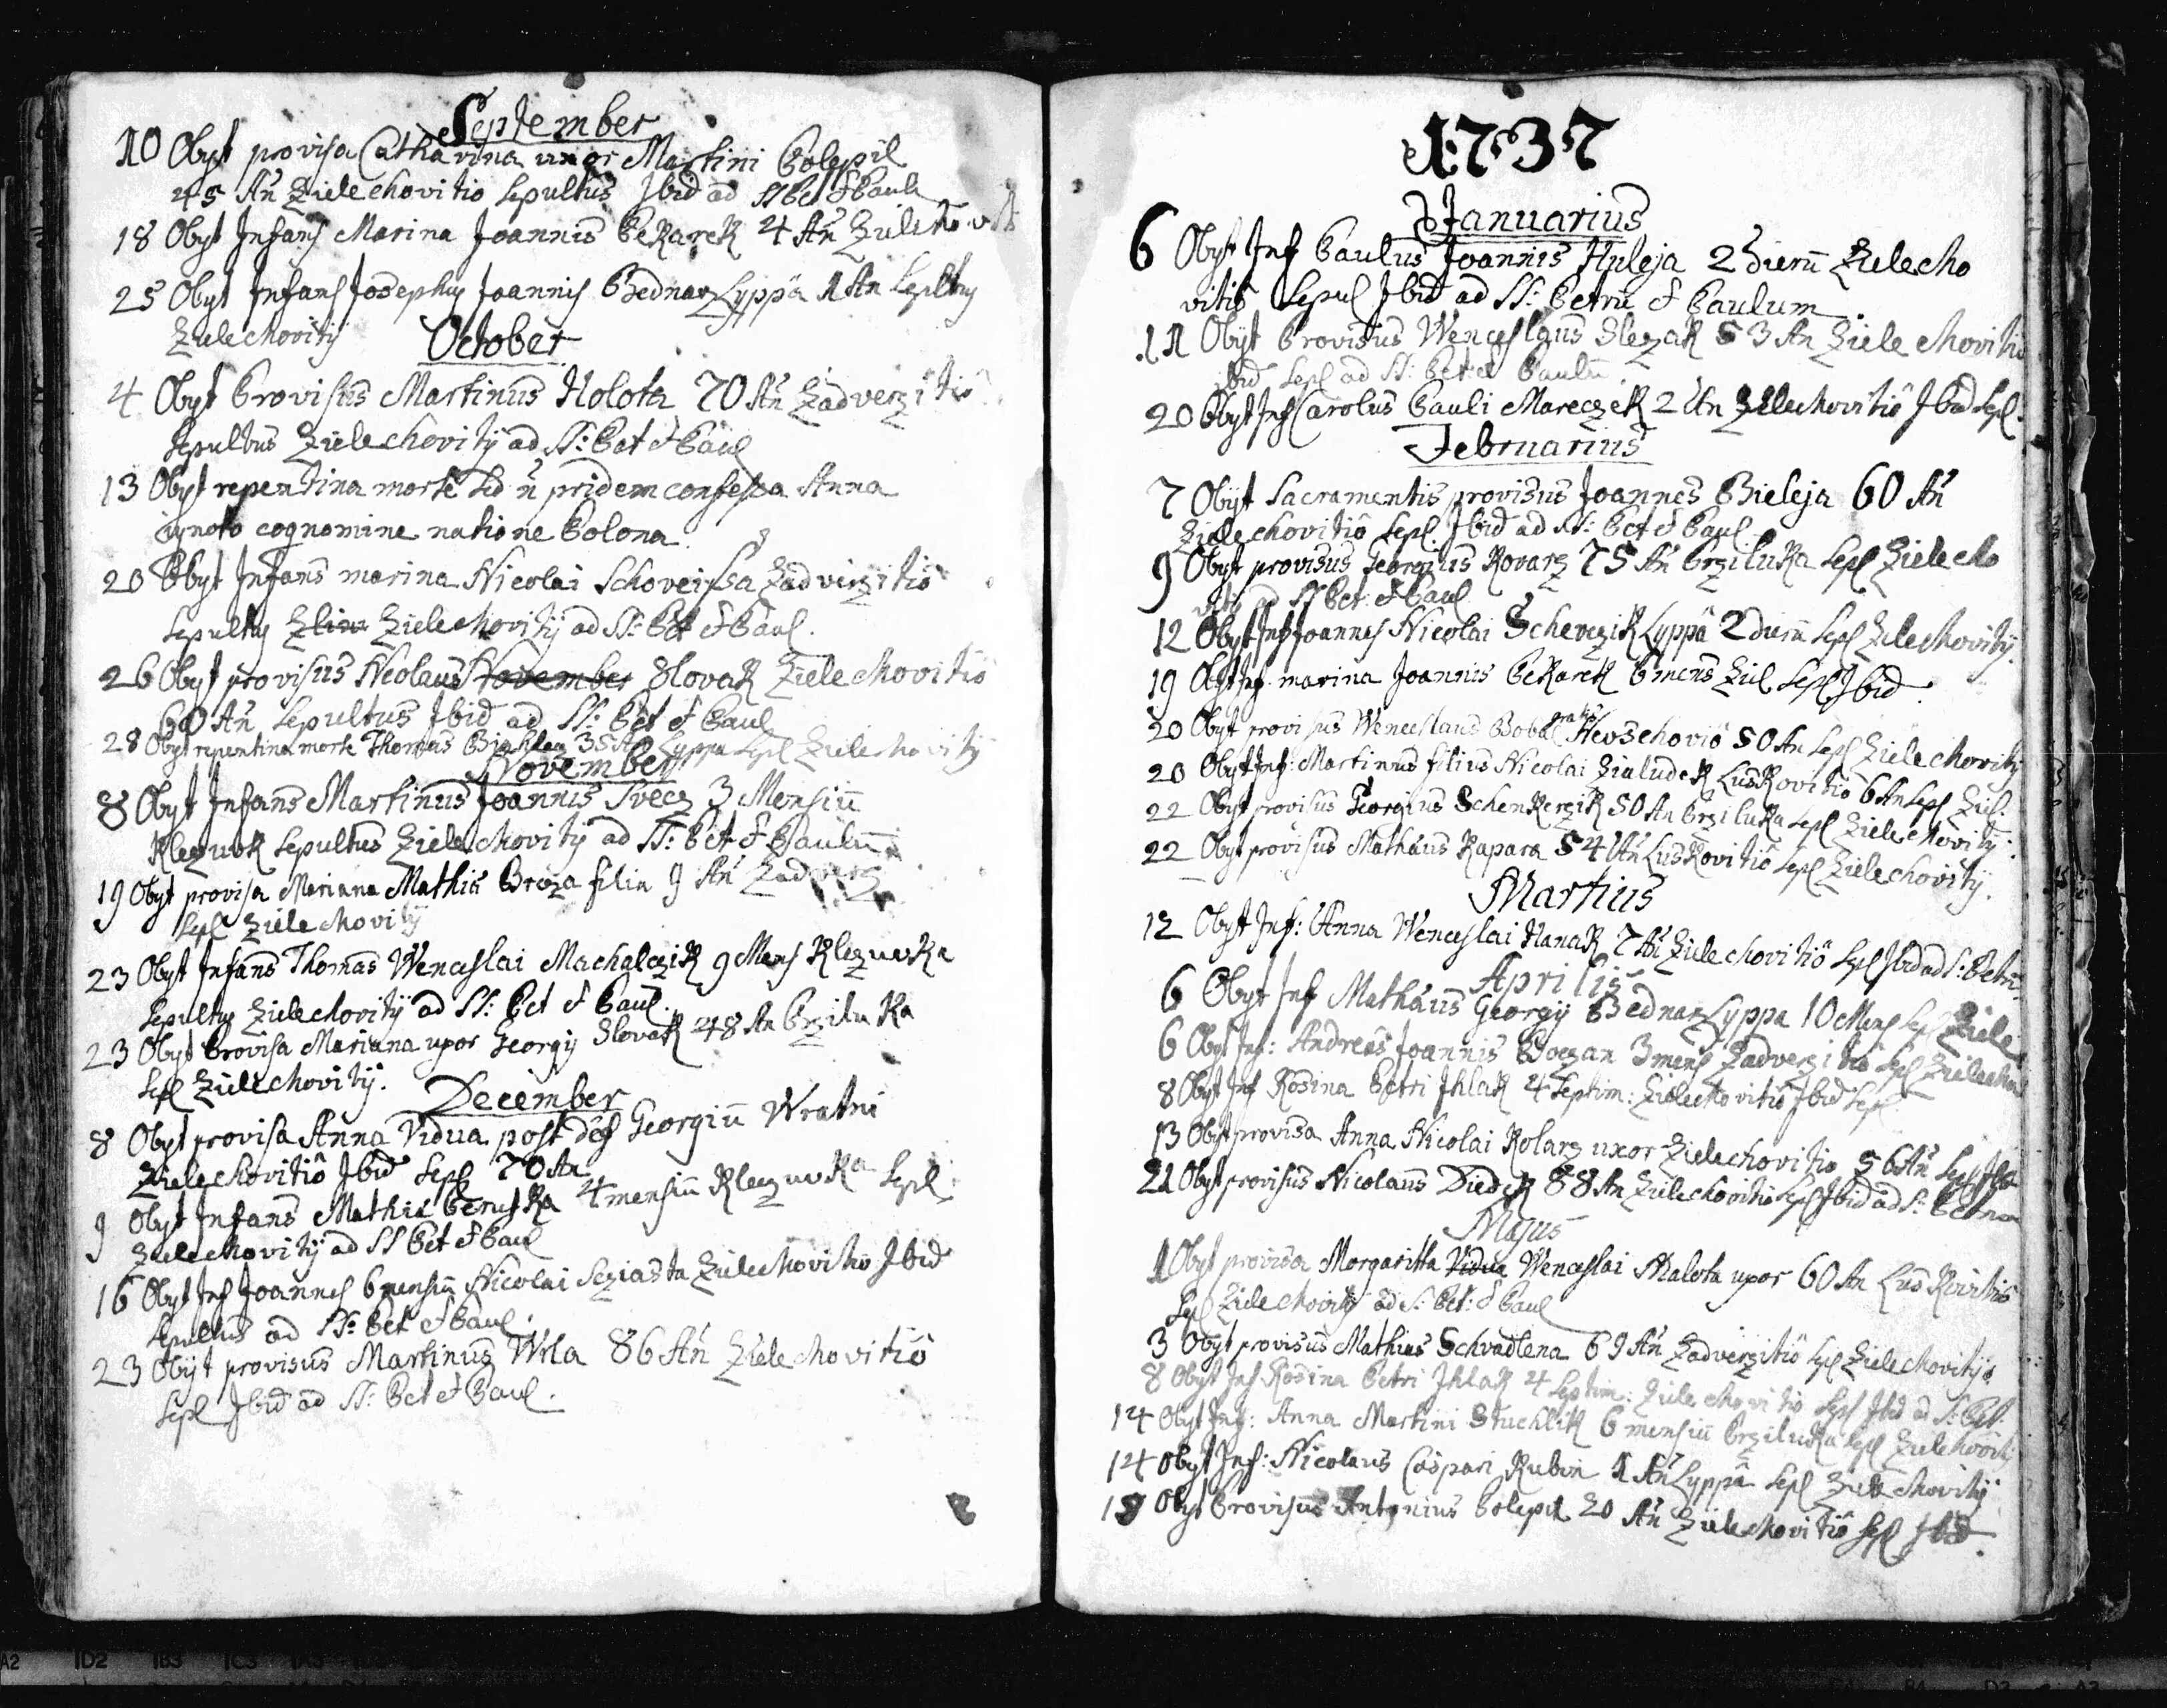 September
10 Obyt provisa Catharina uxor Martini Polepil
45 An̄ Zielechovitio sepultus Ibid ad SS Pet & Paul
18 Obyt Infans Marina Joannis Pekarek 4 An̄
25 Obyt Infans Josephus Joannis Bednarz Lyppa 1 An Sepltus
Zielechovitij
October
4 Obyt Provisus Martinus Holota 70 An̄ Zadverzitio
sepultus Zielechovitij ad SS: Pet & Paul
13 Obyt repentina morte sed n̄ pridem confessa Anna
ignoto cognomine natione Polona
20 Obyt Infans marina Nicolai Zadverzitio
sepultus Zielechovitij ad SS: Pet & Paul.
26 Obyt provisus Nicolaus November Slovak Zielechovitio
60 An̄ Sepultus Ibid ad SS: Pet & Paul
28 Obyt repentina morte Thomas 35 An Lyppa Sepl Zielechovitij
November
8 Obyt Infans Martinus Joannis Svecz 3 Mensiū
Sepultus Zielechovitij ad SS: Pet & Paulū
19 Obyt provisa Mariana Mathis Broza filia 9 An̄ Zadverz
Sepl Zielechovitij
23 Obyt Infans Thomas Wenceslai Machalczik 9 Mens Kleczuvka
Sepultus Zielechovitij ad SS: Pet & Paul.
23 Obyt Provisa Mariana uxor Georgij Slovak 48 An Prziluka
Sepl Zielechovitij.
December
8 Obyt provisa Anna Vidua post def Georgiū Wratni
Zielechovitio Ibid Sepl 70 An
9 Obyt Infans Mathis 4 mensiū Kleczuvka Sepl
Zielechovitij ad SS Pet & Paul
16 Obyt Inf Joannes 6 mensiū Nicolai Zielechovitio Ibid
Sepultus ad SS: Pet & Paul.
23 Obijt provisus Martinus Wrla 86 An̄ Zielechovitio
Sepl Ibid ad SS: Pet & Paul.
1737
Januarius
6 Obyt Inf Paulus Joannis Huleja 2 dierū Zielecho
vitio Sepul Ibid ad SS: Petrū & Paulum.
11 Obijt Provisus Wenceslaus Slezak 53 An Zielechovitio
Ibid Sepl ad SS: Pet & Paulū
20 Obyt Inf Carolus Pauli Mareczek 2 An Zielechovitio Ibid Sepl.
Februarius
7 Obijt Sacramentis provisus Joannes Bieleja 60 An̄
Zielechovitio Sepl. Ibid ad SS: Pet & Paul.
9 Obyt provisus Georgius Kovarz 75 An̄ Prziluka Sepl Zielecho
vitij ad SS Pet: & Paul
12 Obyt Inf Joannes Nicolai Schevczik Lyppa 2 dierū Sepl Zielechovitij.
19 Obyt Inf. marina Joannis Pekarek 6 mens Ziel Sepl Ibid.
20 Obyt provisus Wenceslaus Bobal 50 An Sepl Zielechovitij
20 Obyt Inf: Martinus filius Nicolai Zialudek Luskovitio 6 An Sepl Ziel:
22 Obyt provisus Georgius Schenkerzik 50 An Prziluka Sepl Zielechovitij.
22 Obyt provisus Mathaus Kapara 54 An̄ Luskovitio Sepl Zielechovitij.
Martius
12 Obyt Inf: Anna Wenceslai Hanak 7 An̄ Zielechovitio Sepl Ibid ad S: Petrū
Aprilis
6 Obyt Inf Mathaus Georgij Bednarz Lyppa 10 Mens Sepl Ziele
6 Obyt Inf: Andreas Joannis 3 mens Zadverzitio Sepl Zielechov
8 Obyt Inf Rosina Petri Ihlak 4 Septim: Zielechovitio Ibid Sepl
13 Obyt provisa Anna Nicolai Kolarz uxor Zielechovitio 56 An̄ Sepl Ibid
21 Obyt provisus Nicolaus Diedek 88 An Zielechovitio Sepl Ibid ad S: Petrū
Majus
1 Obyt provisa Morgaritta Vidua Wenceslai Malota uxor 60 An Luskovitio
Sepl Zielechovitij ad S: Pet: & Paul
3 Obyt provisus Mathias Schvadlena 69 An̄ Zadverzitio Sepl Zielechovitij
8 Obyt Inf Rosina Petri Ihlak 4 Septim: Zielechovitio Sepl Ibid ad S: Pet:
14 Obyt Inf: Anna Martini Stuchlik 6 mensiū Prziluka Sepl Zielechovitij
14 Obyt Inf: Nicolaus Caspari Rubin 1 An̄ Lyppa Sepl Zielechovitij
19 Obyt Provisus Antonius Polepil 20 An̄ Zielechovitio Sepl Ibid.